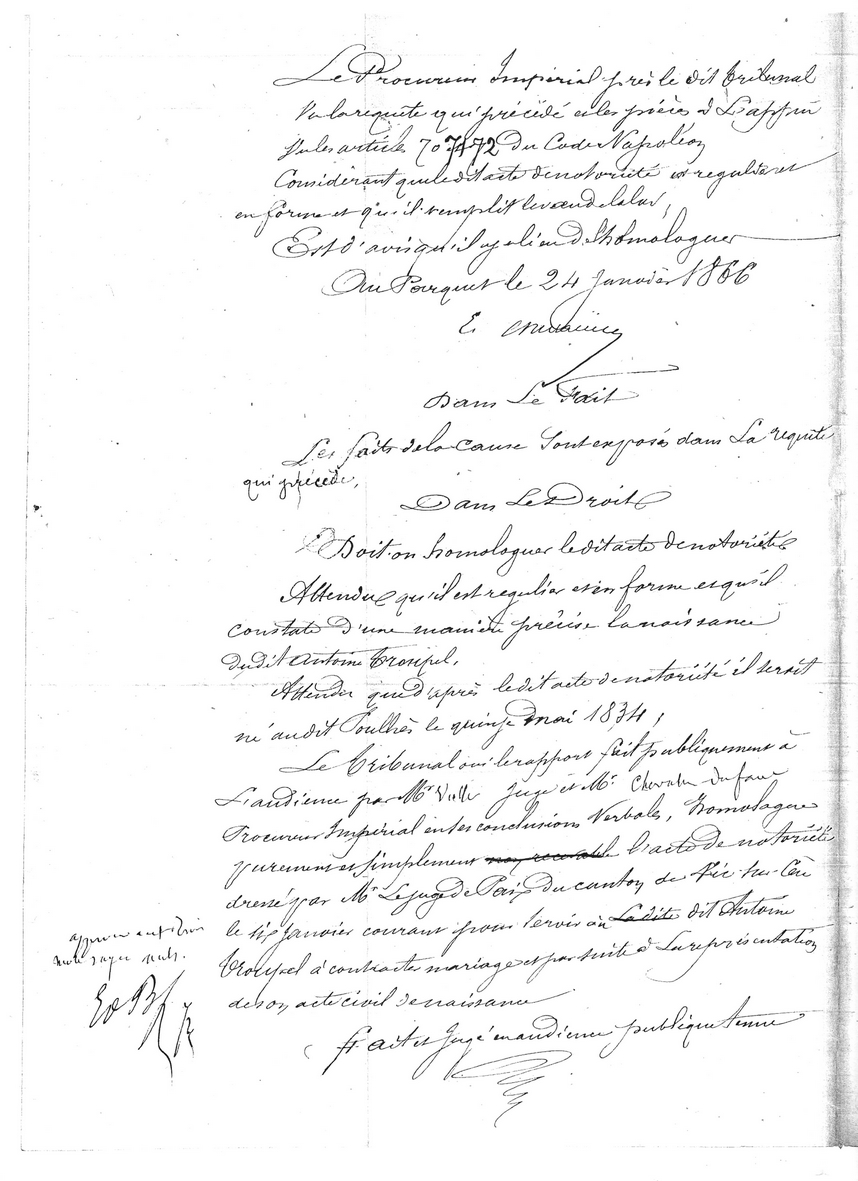 Le Procureur Impérial près le dit tribunal
Vu la requête qui précédé et les pièces à L'appui
Vu les articles 70 71 72 du Code Napoléon
Considérant que le dit acte de notoriété est régulier et
en forme et qu'il remplit le vœu de la loi,
Est d'avis qu'il y a lieu de l'homologuer
Au Parquet le 24 Janvier 1866
Dans Le Fait
Les faits de la cause Sont exposés dans La requête
qui précède,
Dans Le Droit
Doit-on homologuer le dit acte de notoriété
Attendu qu'il est regulier et en forme et qu'il
constate d'une manière précise la naissance
du dit Antoine Troupel,
Attendu que d'après le dit acte de notoriété il serait
né au dit Toulhès le quinze mai 1834,
Le tribunal oui le rapport fait publiquement à
L'audience par Mr Juge et Mr Chevalier Dufau
Procureur Impérial en ses conclusions Verbales, Homologue
purement et simplement l'acte de notoriété
dressé par Mr Le juge de Paix du canton de Vic-sur-Cère
le six janvier courant pour servir au La dite dit Antoine
Troupel à contracter mariage et par suite à La représentation
de son acte civil de naissance
fait et Jugé en audience publique tenue
mots rayés nuls.